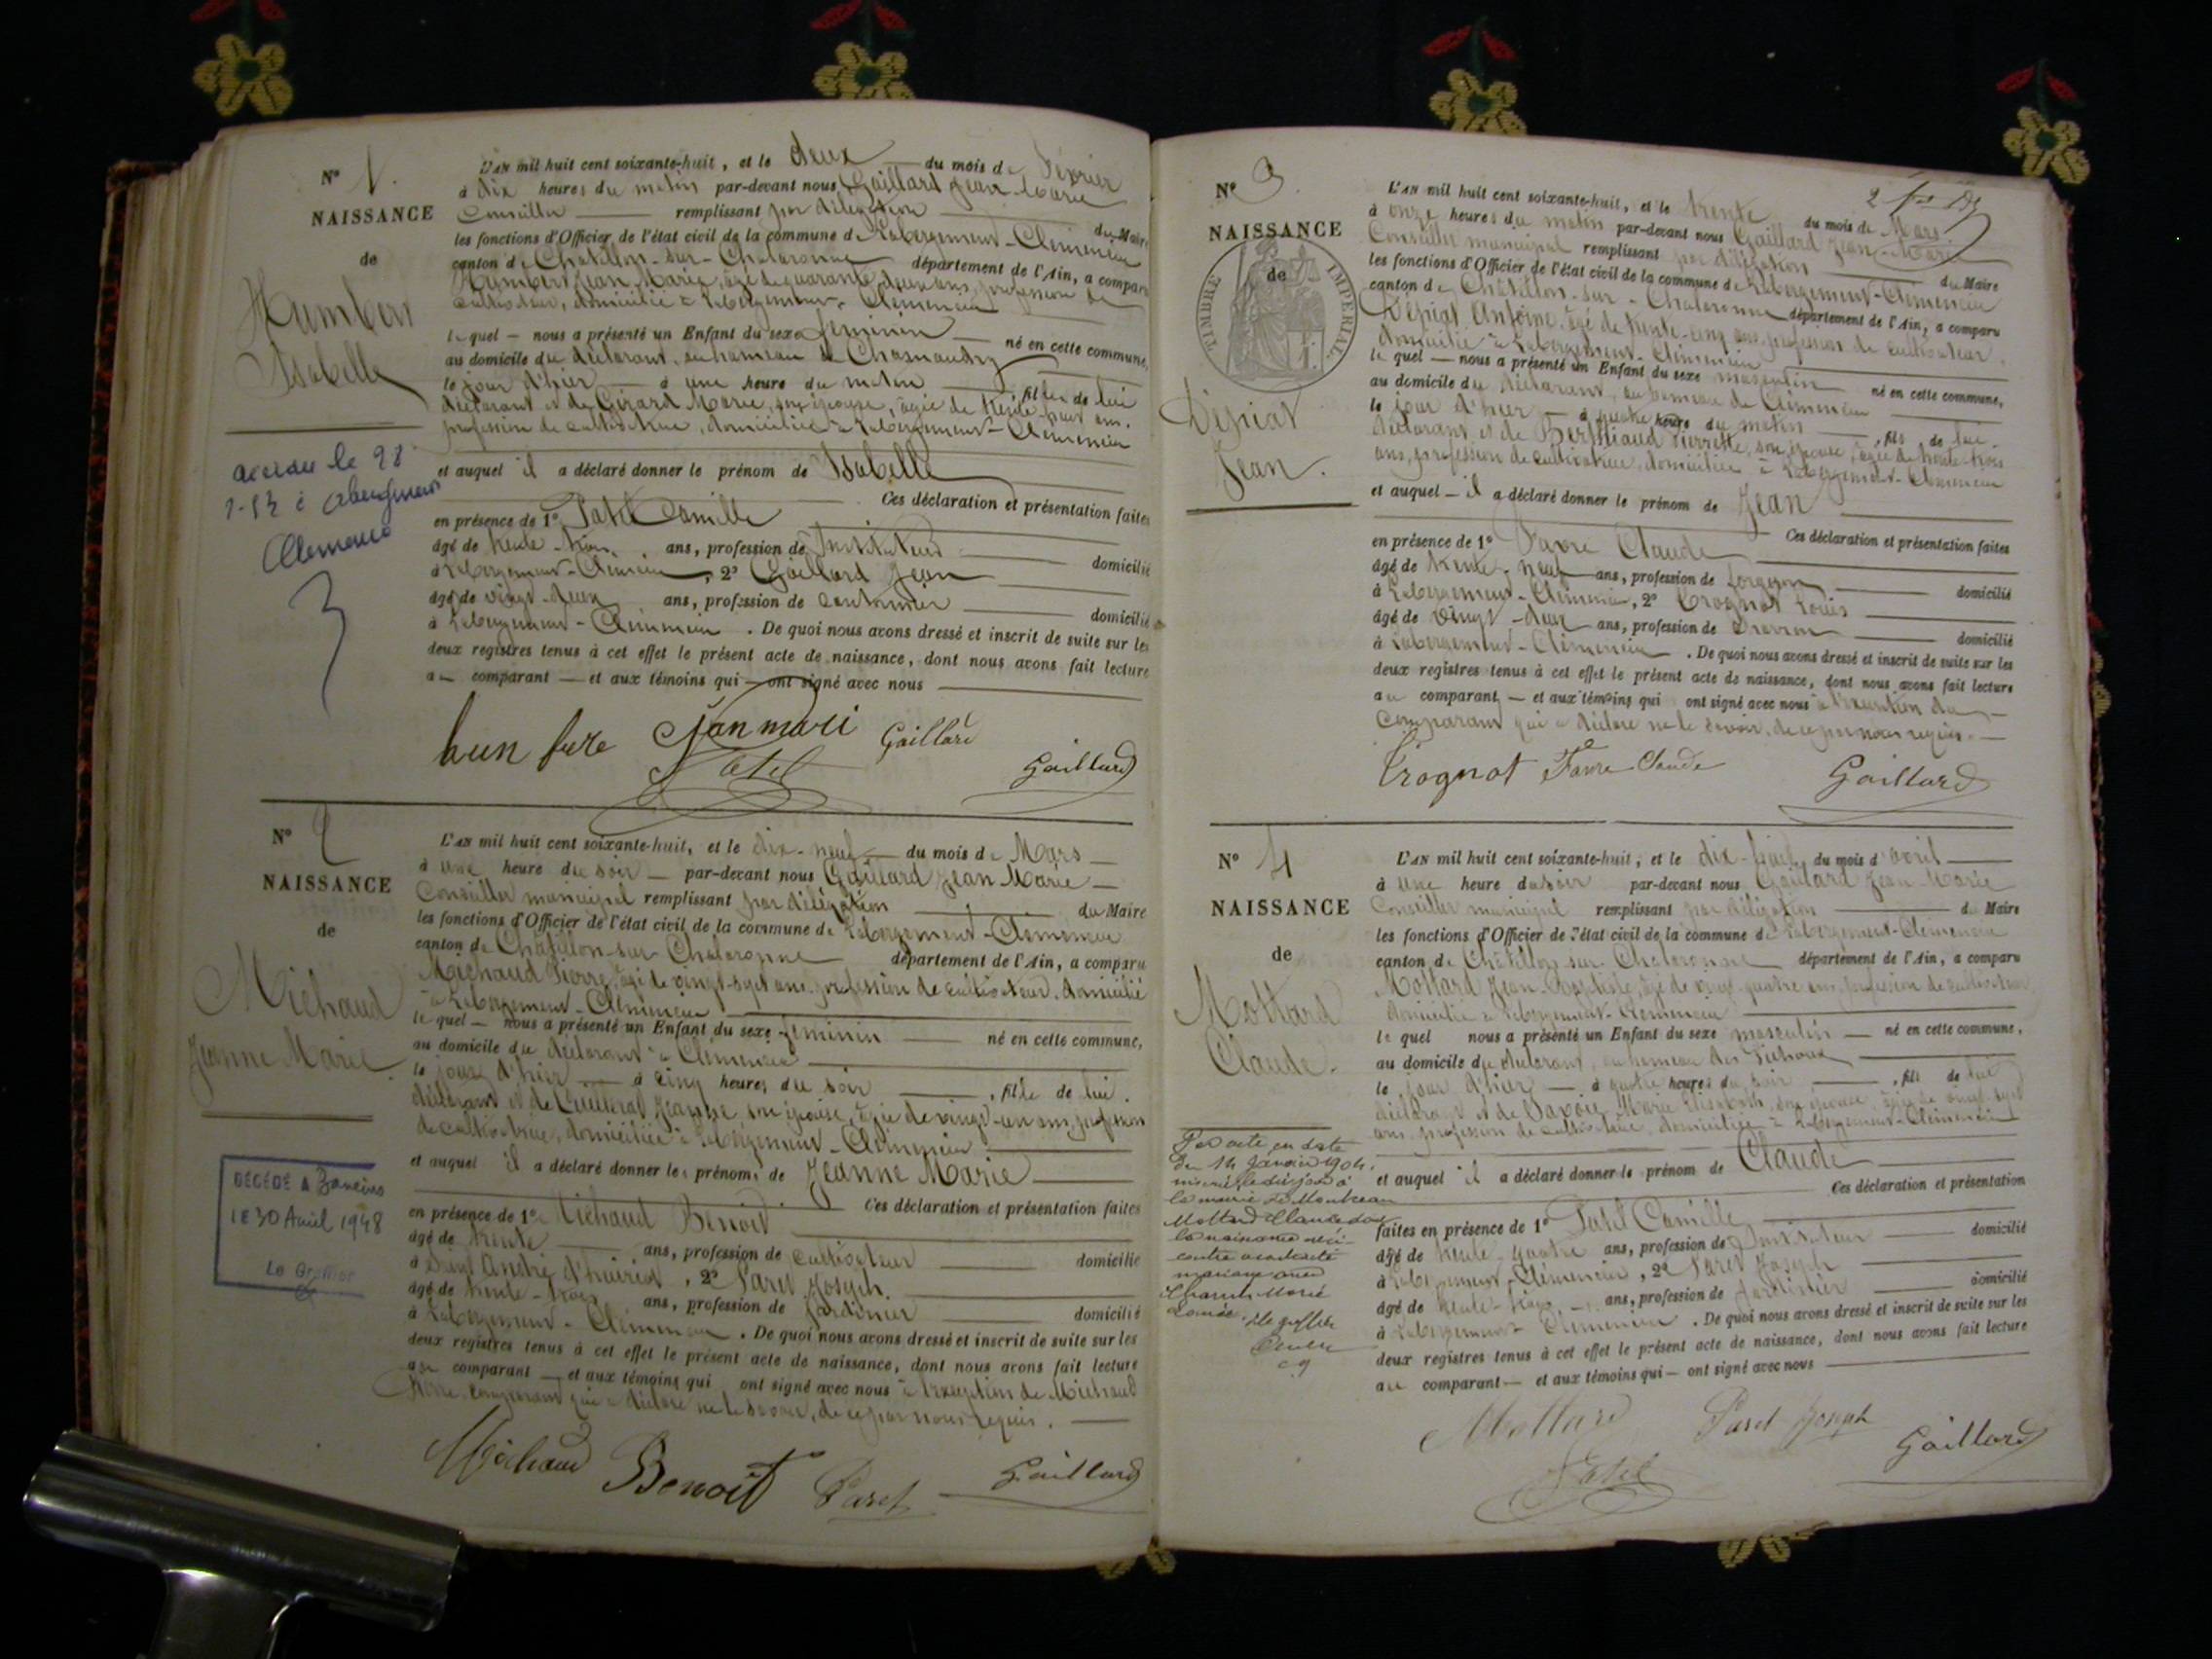 N° 1.
NAISSANCE
de
Humbert
Isabelle
L'AN mil huit cent soixante-huit, et le deux du mois de Février
à dix heures du matin par-devant nous Gaillard Jean Marie
Conseiller remplissant par délégation
du Maire
les fonctions d'Officier de l'état civil de la commune de Labergement-Clémenciat
canton de Châtillon-sur-Chalaronne département de l'Ain, a comparu
Humbert Jean Marie, âgé de quarante deux ans, profession de
cultivateur, domicilié à Labergement-Clémenciat
lequel — nous a présenté un Enfant du sexe féminin né en cette commune,
au domicile du déclarant, au hameau de
le jour d'hier à une heure du matin, fille de lui
déclarant et de Girard Marie, son épouse, âgée de trente-huit ans,
profession de cultivatrice, domiciliée à Labergement-Clémenciat
et auquel il a déclaré donner le prénom de Isabelle
Ces déclaration et présentation faites
en présence de 1° Patel Camille
âgé de trente-trois ans, profession de Instituteur domicilié
à Labergement-Clémenciat, 2° Gaillard Jean
âgé de vingt-deux ans, profession de cantonnier domicilié
à Labergement-Clémenciat. De quoi nous avons dressé et inscrit de suite sur les
deux registres tenus à cet effet le présent acte de naissance, dont nous avons fait lecture
au comparant — et aux témoins qui — ont signé avec nous
hun bere Jan mari Gaillard
Patel Gaillard
décédée le 28
Clemencia
N° 2
NAISSANCE
de
Michaud
Jeanne Marie
L'AN mil huit cent soixante-huit, et le dix-neuf du mois de Mars
à une heure du soir — par-devant nous Gaillard Jean Marie
Conseiller municipal remplissant par délégation du Maire
les fonctions d'Officier de l'état civil de la commune de Labergement-Clémenciat
canton de Châtillon-sur-Chalaronne département de l'Ain, a comparu
Michaud Pierre, âgé de vingt-sept ans, profession de cultivateur, domicilié
à Labergement-Clémenciat
lequel — nous a présenté un Enfant du sexe féminin né en cette commune,
au domicile du déclarant à Clémenciat
le jour d'hier à cinq heures du soir, fille de lui
déclarant et de Jeanne son épouse, âgée de vingt-un ans, profession
de cultivatrice, domiciliée à Labergement-Clémenciat
et auquel il a déclaré donner les prénoms de Jeanne Marie
Ces déclaration et présentation faites
en présence de 1° Michaud Benoit
âgé de trente ans, profession de cultivateur domicilié
à Saint André d'huiriat, 2° Paret Joseph
âgé de trente-trois ans, profession de Jardinier domicilié
à Labergement-Clémenciat. De quoi nous avons dressé et inscrit de suite sur les
deux registres tenus à cet effet le présent acte de naissance, dont nous avons fait lecture
au comparant — et aux témoins qui ont signé avec nous à l'exception de Michaud
Pierre comparant qui a déclaré ne le savoir, de ce par nous requis.
Michaud Benoit Paret Gaillard
DÉCÉDÉ A
LE 30 Avril 1948
Le Greffier
N° 3.
NAISSANCE
de
TIMBRE IMPÉRIAL
Dépiat
Jean.
L'AN mil huit cent soixante-huit, et le trente du mois de Mars
à onze heures du matin par-devant nous Gaillard Jean-Marie
Conseiller municipal remplissant par délégation du Maire
les fonctions d'Officier de l'état civil de la commune de Labergement-Clémenciat
canton de Châtillon-sur-Chalaronne département de l'Ain, a comparu
Dépiat Antoine, âgé de trente-cinq ans, profession de cultivateur,
domicilié à Labergement-Clémenciat
lequel — nous a présenté un Enfant du sexe masculin né en cette commune,
au domicile du déclarant, au hameau de Clémenciat
le jour d'hier à quatre heures du matin, fils de lui
déclarant et de Berthiaud Pierrette, son épouse, âgée de trente-trois
ans, profession de cultivatrice, domiciliée à Labergement-Clémenciat
et auquel — il a déclaré donner le prénom de Jean
Ces déclaration et présentation faites
en présence de 1° Favre Claude
âgé de trente-neuf ans, profession de forgeron domicilié
à Labergement-Clémenciat, 2° Trognot Louis
âgé de vingt-deux ans, profession de domicilié
à Labergement-Clémenciat. De quoi nous avons dressé et inscrit de suite sur les
deux registres tenus à cet effet le présent acte de naissance, dont nous avons fait lecture
au comparant, — et aux témoins qui ont signé avec nous à l'exception du
comparant qui a déclaré ne le savoir, de ce par nous requis.
Trognot Favre Claude Gaillard
N° 4
NAISSANCE
de
Mottard
Claude.
L'AN mil huit cent soixante-huit, et le dix-huit du mois d'avril
à une heure du soir par-devant nous Gaillard Jean-Marie
Conseiller municipal remplissant par délégation du Maire
les fonctions d'Officier de l'état civil de la commune de Labergement-Clémenciat
canton de Châtillon-sur-Chalaronne département de l'Ain, a comparu
Mottard Jean-Baptiste, âgé de vingt-quatre ans, profession de cultivateur
domicilié à Labergement-Clémenciat
lequel nous a présenté un Enfant du sexe masculin — né en cette commune,
au domicile du déclarant, au hameau des
le jour d'hier — à quatre heures du soir, fils de lui
déclarant et de Savoie Marie Elisabeth, son épouse, âgée de vingt-sept
ans, profession de cultivatrice, domiciliée à Labergement-Clémenciat
et auquel il a déclaré donner le prénom de Claude
Ces déclaration et présentation
faites en présence de 1° Patel Camille domicilié
âgé de trente-quatre ans, profession de Instituteur
à Labergement-Clémenciat, 2° Paret Joseph domicilié
âgé de trente-trois ans, profession de Jardinier
à Labergement-Clémenciat. De quoi nous avons dressé et inscrit de suite sur les
deux registres tenus à cet effet le présent acte de naissance, dont nous avons fait lecture
au comparant — et aux témoins qui — ont signé avec nous
Mottard Paret Joseph
Patel Gaillard
Par acte en date
du 14 Janvier 1904,
la mairie de
Mottard Claude dont
la naissance est ci
contre a contracté
mariage avec
Marie